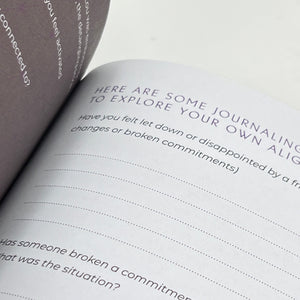 connected to?
you feel activation
HERE ARE SOME JOURNALING
TO EXPLORE YOUR OWN
Have you felt let down or disappointed by a
changes or broken commitments)
Has someone broken a
what was the situation?